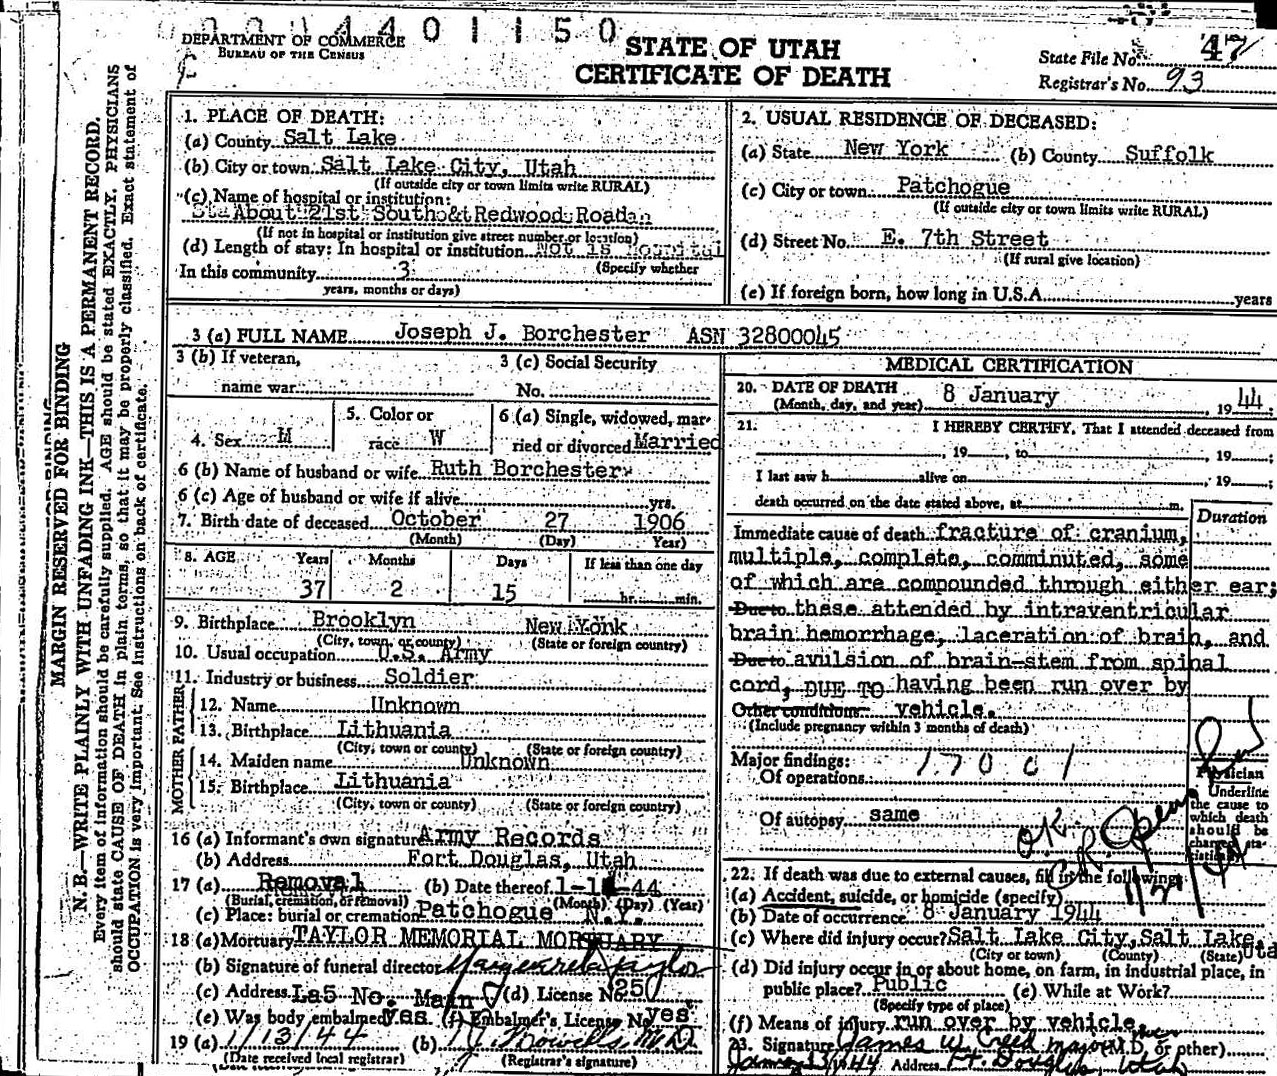 4 4 0 1 1 5 0
DEPARTMENT OF COMMERCE
BUREAU OF THE CENSUS
STATE OF UTAH
CERTIFICATE OF DEATH
State File No. 47
Registrar's No. 93
MARGIN RESERVED FOR BINDING
N. B.—WRITE PLAINLY WITH UNFADING INK—THIS IS A PERMANENT RECORD.
Every item of information should be carefully supplied. AGE should be stated EXACTLY. PHYSICIANS
should state CAUSE OF DEATH in plain terms, so that it may be properly classified. Exact statement of
OCCUPATION is very important. See instructions on back of certificate.
1. PLACE OF DEATH:
(a) County Salt Lake
(b) City or town Salt Lake City, Utah
(If outside city or town limits write RURAL)
(c) Name of hospital or institution:
About 21st South & Redwood Road
(If not in hospital or institution give street number or location)
(d) Length of stay: In hospital or institution Not is hospital
(Specify whether
In this community 3
years, months or days)
2. USUAL RESIDENCE OF DECEASED:
(a) State New York (b) County Suffolk
(c) City or town Patchogue
(If outside city or town limits write RURAL)
(d) Street No. E. 7th Street
(If rural give location)
(e) If foreign born, how long in U.S.A. years
3 (a) FULL NAME Joseph J. Borchester ASN 32800045
3 (b) If veteran,
name war
3 (c) Social Security
No.
4. Sex M
5. Color or
race W
6 (a) Single, widowed, mar-
ried or divorced Married
6 (b) Name of husband or wife Ruth Borchester
6 (c) Age of husband or wife if alive yrs.
7. Birth date of deceased October 27 1906
(Month) (Day) Year)
8. AGE Years Months Days If less than one day
37 2 15 hr. min.
9. Birthplace Brooklyn New York
(City, town, or county) (State or foreign country)
10. Usual occupation U.S. Army
11. Industry or business Soldier
FATHER
12. Name Unknown
13. Birthplace Lithuania
(City, town or county) (State or foreign country)
MOTHER
14. Maiden name Unknown
15. Birthplace Lithuania
(City, town or county) (State or foreign country)
16 (a) Informant's own signature Army Records
(b) Address Fort Douglas, Utah
17 (a) Removal (b) Date thereof 1-1 -44
(Burial, cremation, or removal) (Month) (Day) (Year)
(c) Place: burial or cremation Patchogue N.Y.
18 (a) Mortuary TAYLOR MEMORIAL MORTUARY
(b) Signature of funeral director Marguerite Taylor
(c) Address No. Main (d) License No. 250
(e) Was body embalmed Yes (f) Embalmer's License No yes
19 (a) 1/13/44 (b) M.D.
(Date received local registrar) (Registrar's signature)
MEDICAL CERTIFICATION
20. DATE OF DEATH 8 January, 19 44;
(Month, day, and year)
21. I HEREBY CERTIFY, That I attended deceased from
, 19 , to , 19 ;
I last saw h alive on , 19 ;
death occurred on the date stated above, at m.
Duration
Immediate cause of death fracture of cranium,
multiple, complete, comminuted, some
of which are compounded through either ear;
Due to these attended by intraventricular
brain hemorrhage, laceration of brain, and
Due to avulsion of brain-stem from spinal
cord, DUE TO having been run over by
Other conditions vehicle.
(Include pregnancy within 3 months of death)
Major findings: 17001
Of operations
Of autopsy same
Physician
Underline
the cause to
which death
should be
charged sta-
tistically
O.K.
1/29/44
22. If death was due to external causes, fill in the following:
(a) Accident, suicide, or homicide (specify)
(b) Date of occurrence 8 January 1944
(c) Where did injury occur? Salt Lake City, Salt Lake, Uta
(City or town) (County) (State)
(d) Did injury occur in or about home, on farm, in industrial place, in
public place? Public (e) While at Work?
(Specify type of place)
(f) Means of injury run over by vehicle
23. Signature James W. Creed Major (M.D. or other)
Address Ft. Douglas, Utah